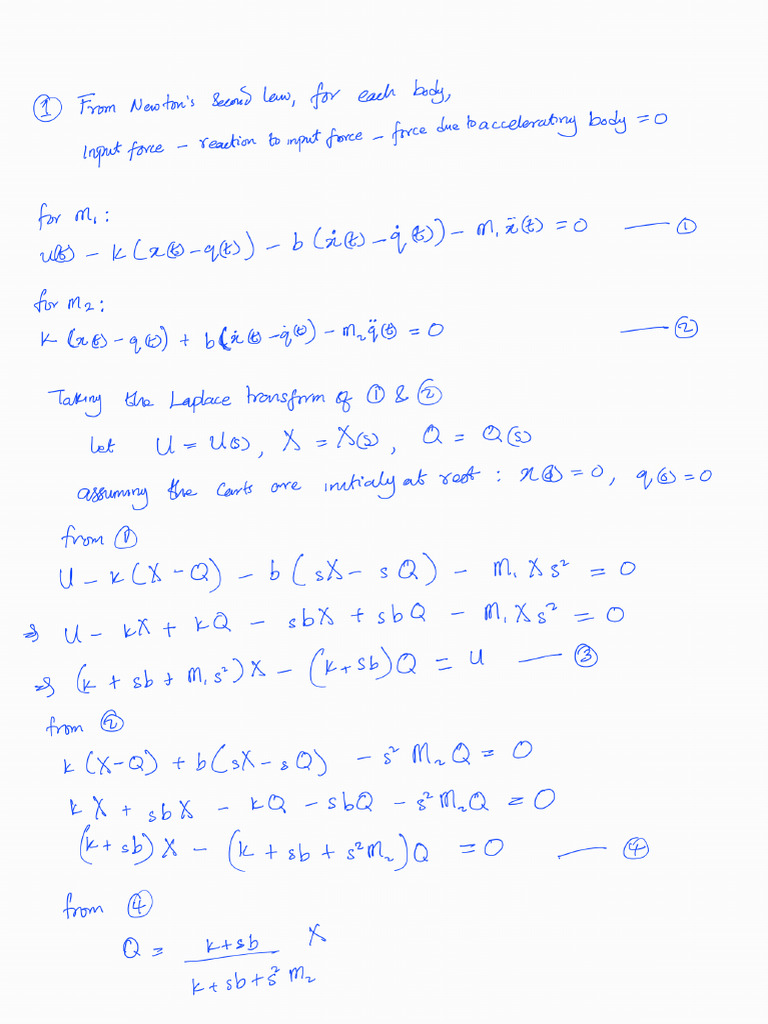 ① From Newton's second law, for each body,
Input force – reaction to input force – force due to accelerating body = 0
for M₁:
u(t) – k(x(t) – q(t)) – b(ẋ(t) – q̇(t)) – M₁ẍ(t) = 0 —— ①
for M₂:
k(x(t) – q(t)) + b(ẋ(t) – q̇(t)) – M₂q̈(t) = 0 —— ②
Taking the Laplace transform of ① & ②
let U = U(s), X = X(s), Q = Q(s)
assuming the carts are initialy at rest : x(0) = 0, q(0) = 0
from ①
U – k(X – Q) – b(sX – sQ) – M₁Xs² = 0
⇒ U – kX + kQ – sbX + sbQ – M₁Xs² = 0
⇒ (k + sb + M₁s²)X – (k + sb)Q = U —— ③
from ②
k(X – Q) + b(sX – sQ) – s²M₂Q = 0
kX + sbX – kQ – sbQ – s²M₂Q = 0
(k + sb)X – (k + sb + s²M₂)Q = 0 —— ④
from ④
Q = k + sb X
k + sb + s²M₂